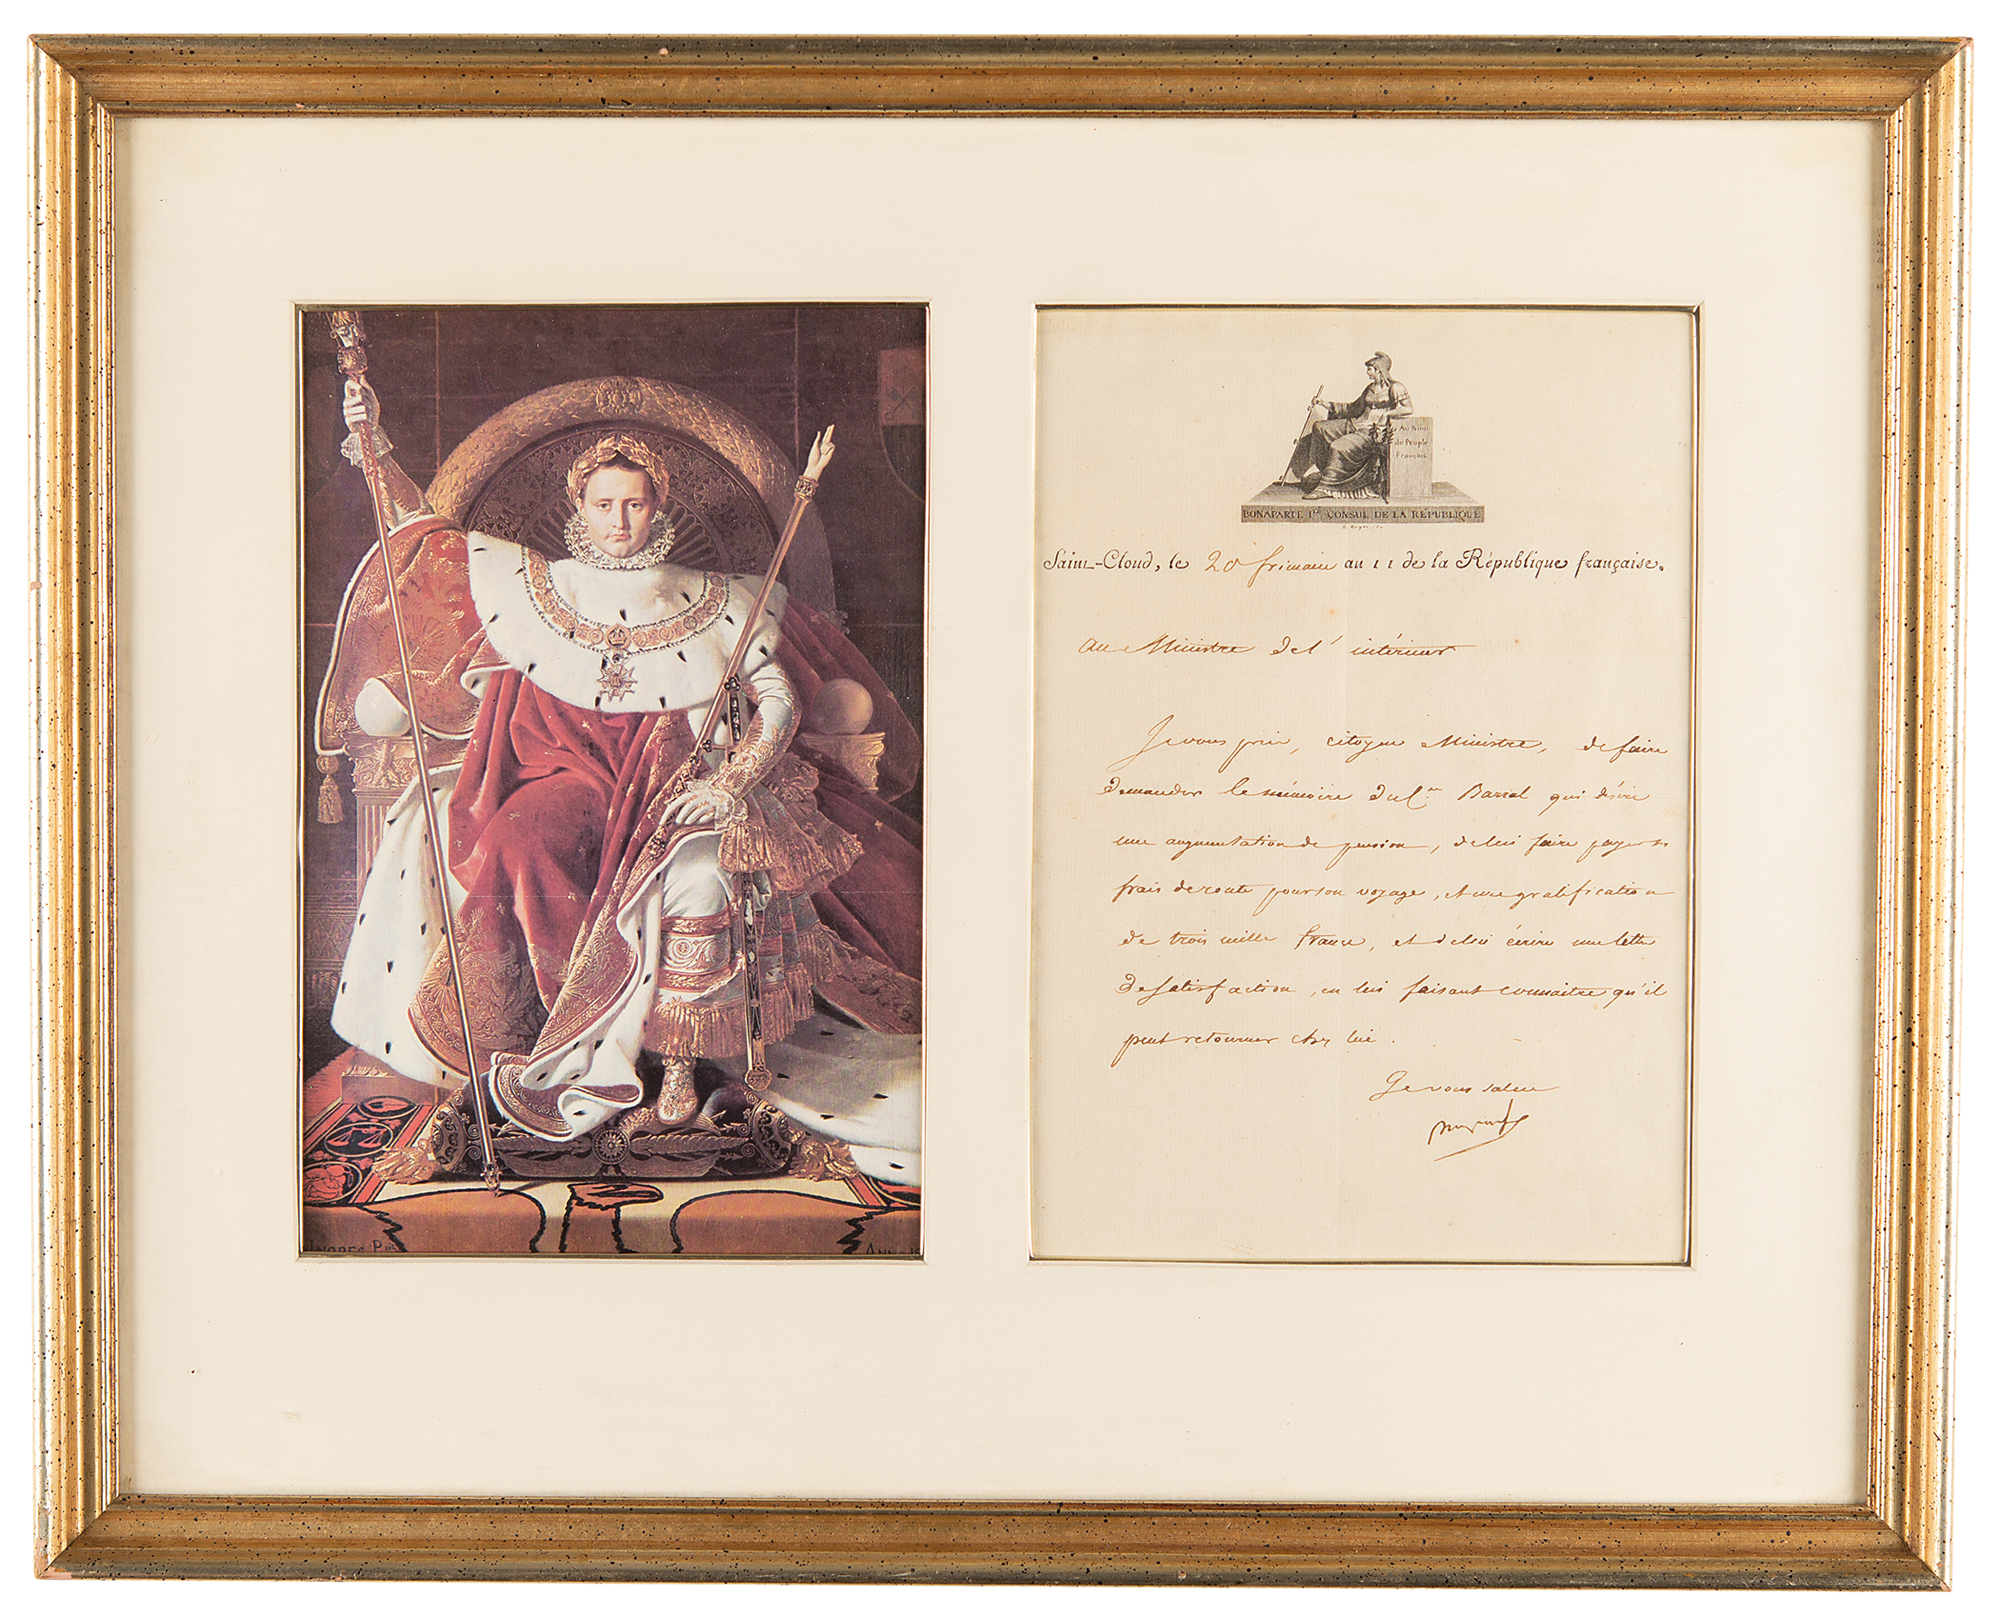 INGRES P
ANNO
Au Nom
du Peuple
Français
BONAPARTE 1er. CONSUL DE LA RÉPUBLIQUE
Saint-Cloud, le 20 frimaire an 11 de la République française.
Au Ministre de l'intérieur
Je vous prie, citoyen Ministre, de faire
demander le mémoire du Cen Barral qui désire
une augmentation de pension, de lui faire payer
frais de route pour son voyage, et une gratification
de trois mille francs, et de lui écrire une lettre
de satisfaction, en lui faisant connaitre qu'il
peut retourner chez lui.
Je vous salue